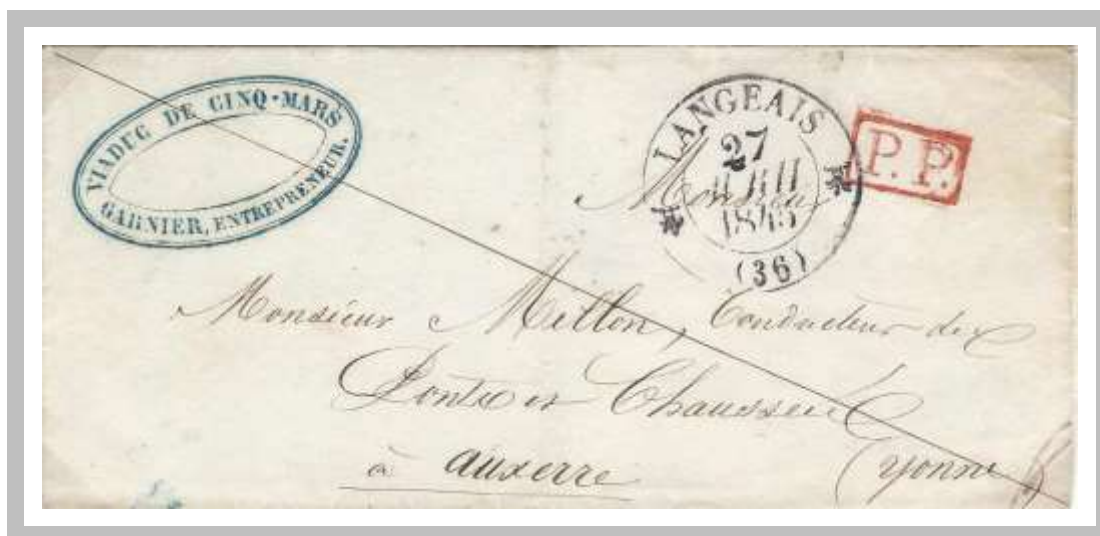 VIADUC DE CINQ-MARS
GARNIER, ENTREPRENEUR.
LANGEAIS
27
1845
(36)
P.P.
Monsieur
Monsieur Millon, Conducteur des
Ponts et Chaussées
à auxerre (yonne)